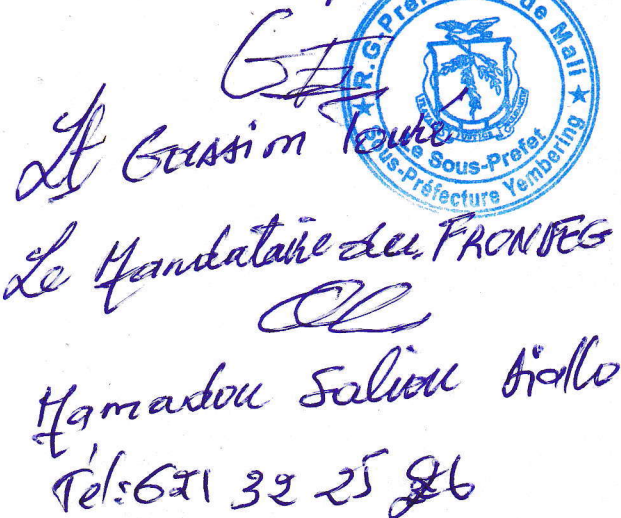 R.G. Préfecture de Mali
Le Sous-Prefet
Sous-Préfecture Yembering
Lt Gassim Touré
Le Mandataire du FRONDEG
Mamadou Saliou Diallo
Tél: 621 32 25 26